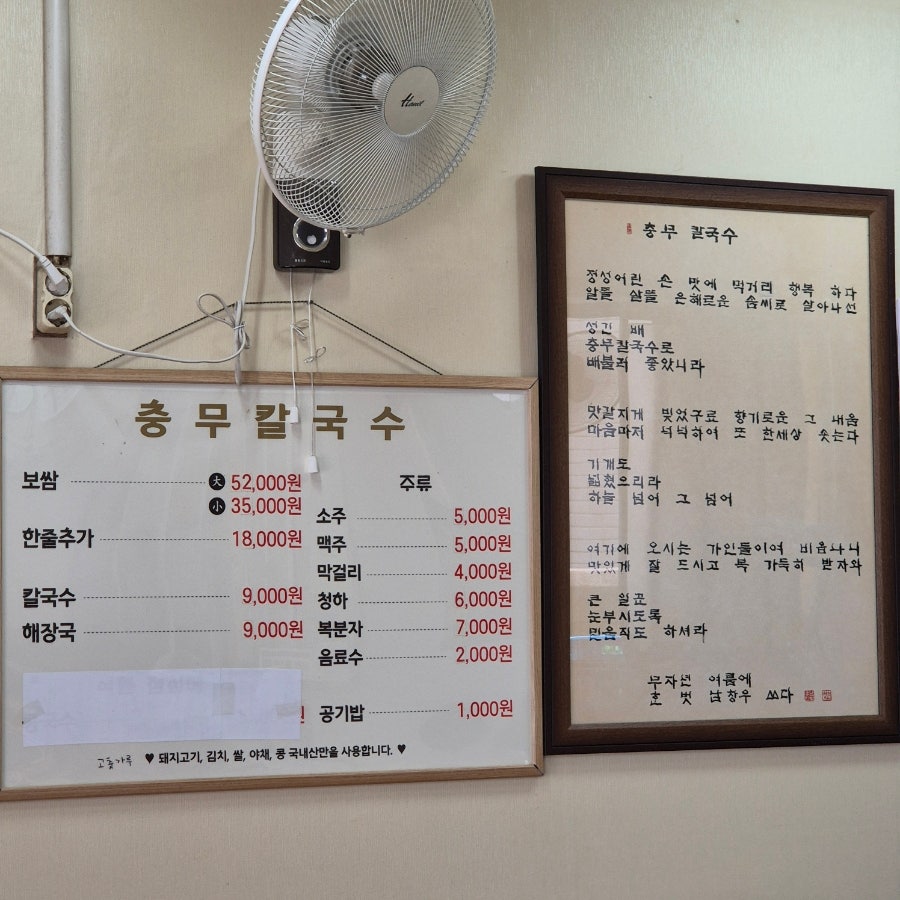 Hanil
충무칼국수
보쌈 大 52,000원
小 35,000원
한줄추가 18,000원
칼국수 9,000원
해장국 9,000원
주류
소주 5,000원
맥주 5,000원
막걸리 4,000원
청하 6,000원
복분자 7,000원
음료수 2,000원
공기밥 1,000원
고춧가루 ♥ 돼지고기, 김치, 쌀, 야채, 콩 국내산만을 사용합니다. ♥
충무 칼국수
정성어린 손 맛에 먹거리 행복 하다
알뜰 살뜰 은혜로운 솜씨로 살아나선
성긴 배
충무칼국수로
배불러 좋았나라
맛깔지게 빚었구료 향기로운 그 내음
마음마저 넉넉하여 또 한세상 솟는다
기개도
넓혔으리라
하늘 넘어 그 넘어
여기에 오시는 가인들이여 비옵나니
맛있게 잘 드시고 복 가득히 받자와
큰 일꾼
눈부시도록
믿음직도 하셔라
무자년 여름에
벗 남창우 쓰다